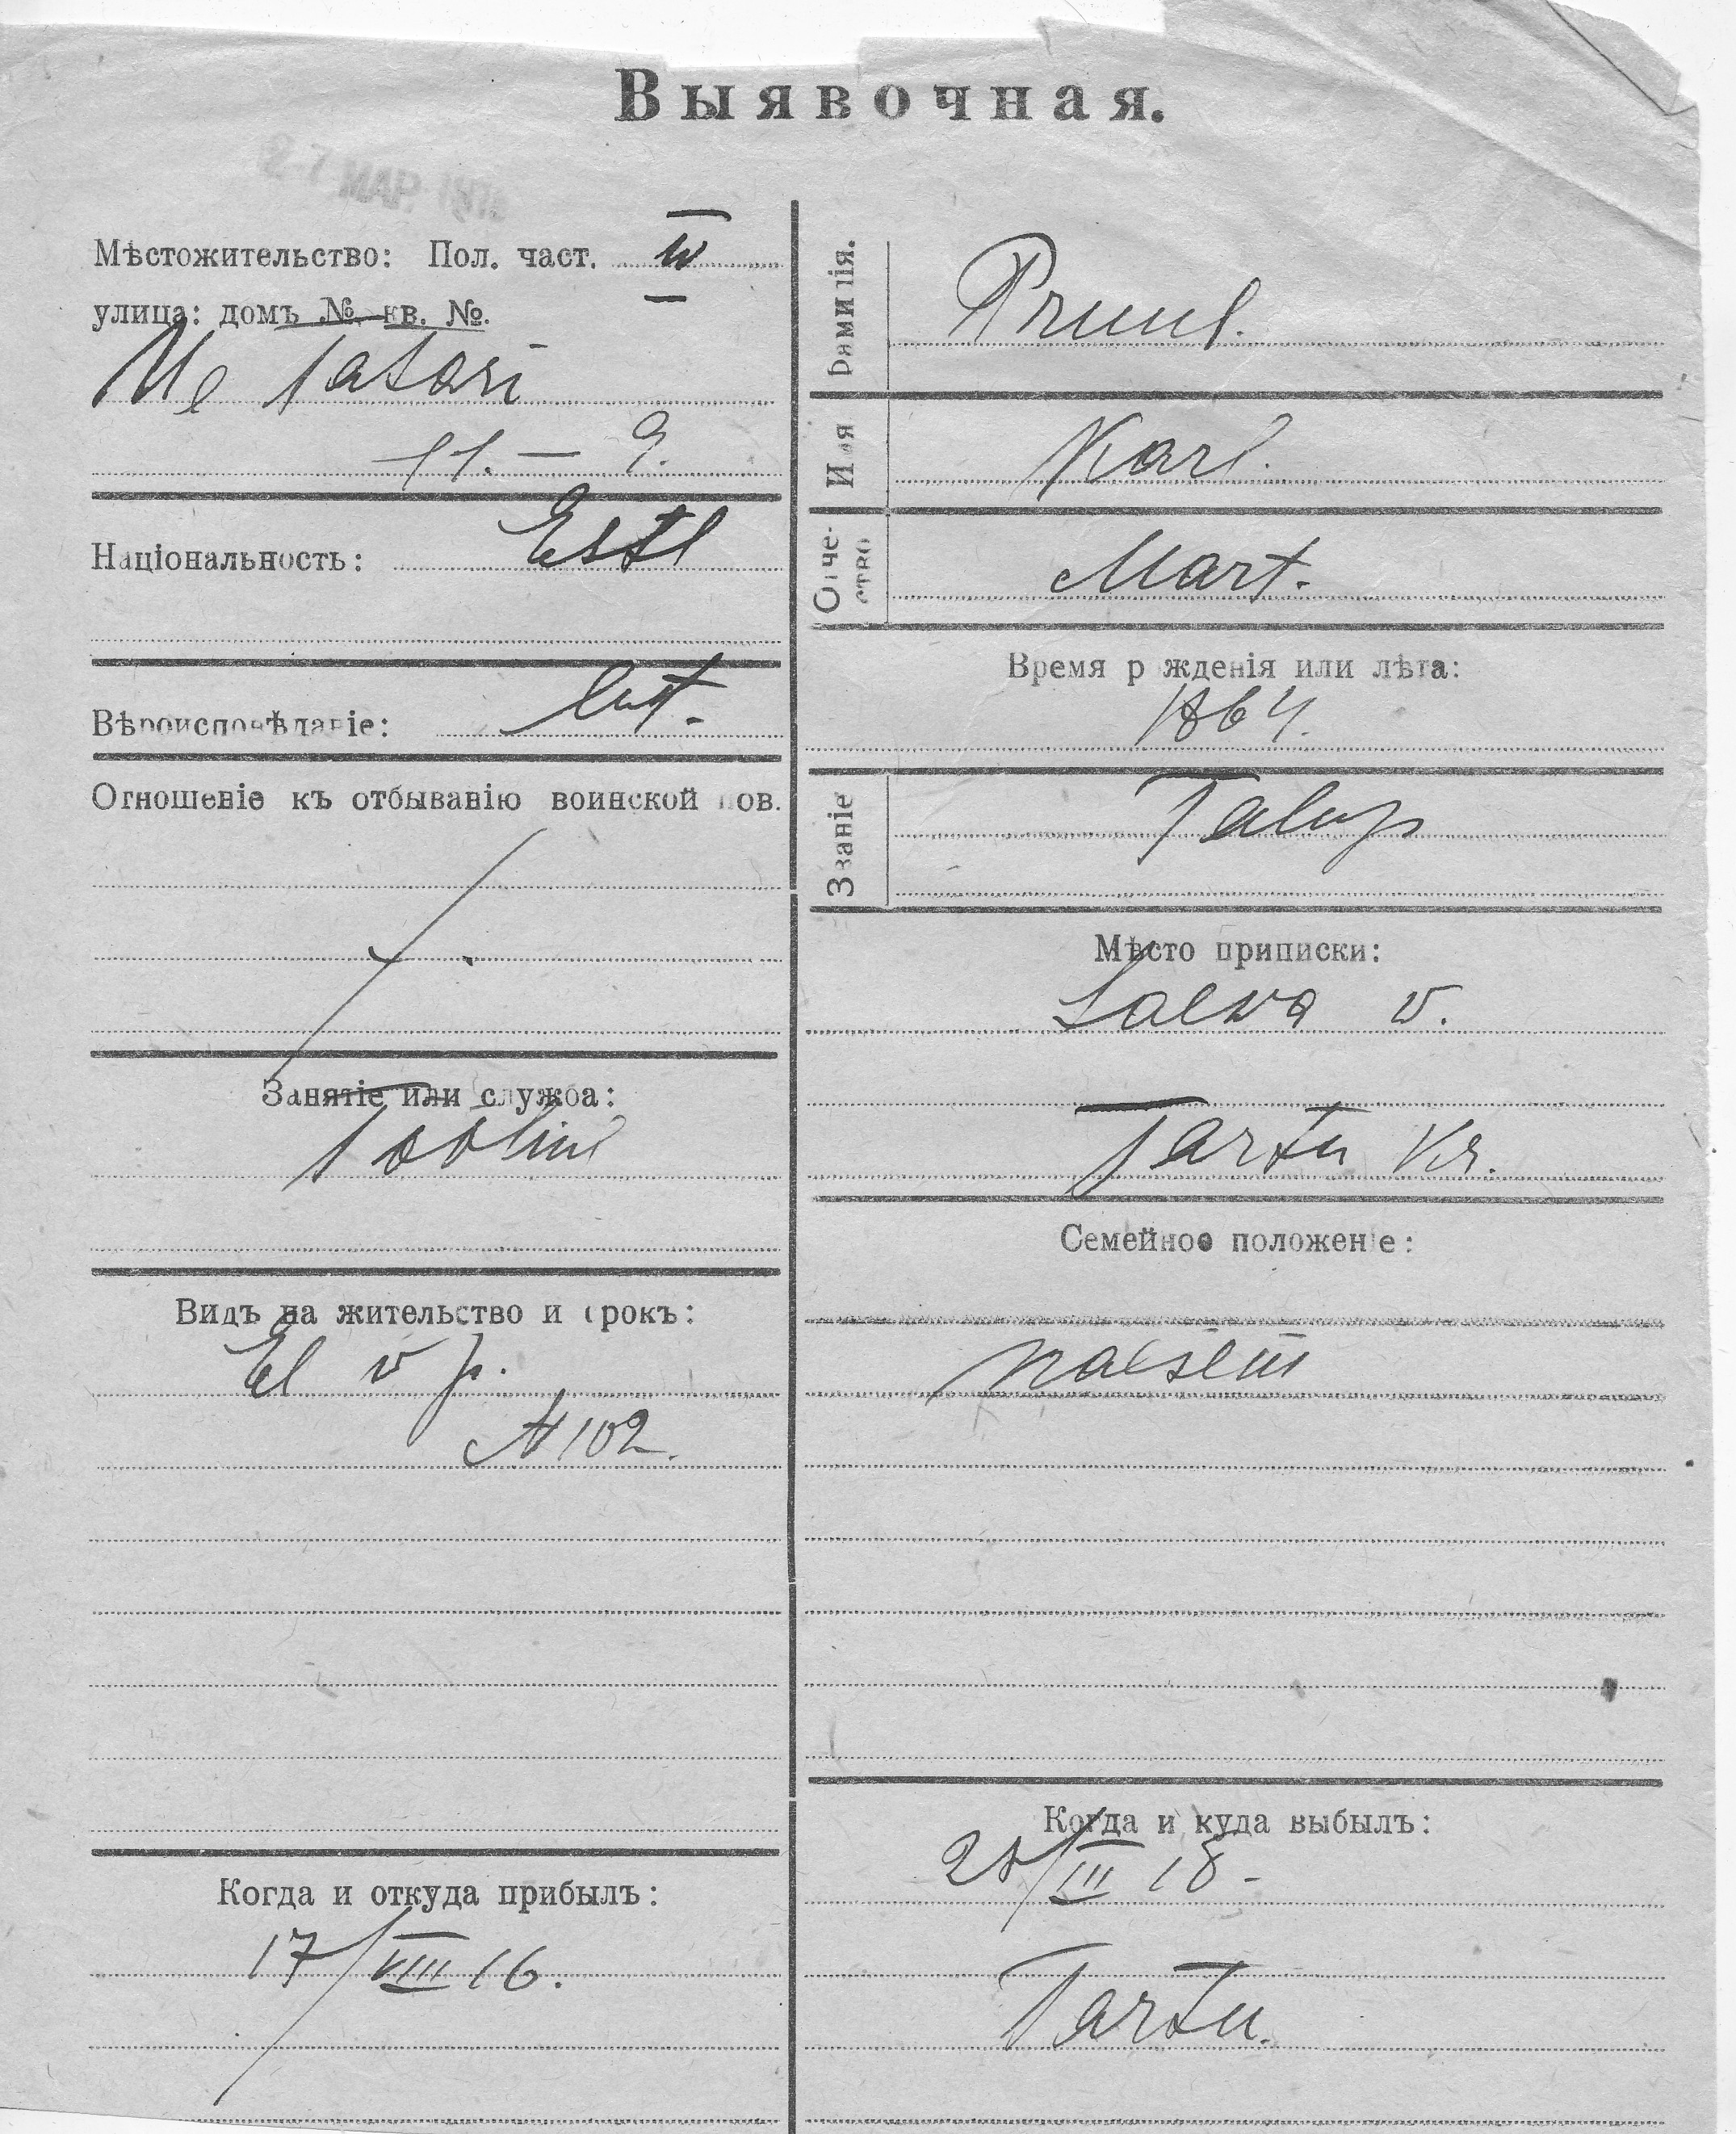 Выявочная.
27 МАР. 191
Мѣстожительство: Пол. част. IV
улица: домъ №. кв. №.
Uе Tatari
11. — 9.
Національность: Estl
Вѣроисповѣданіе: lut.
Отношеніе къ отбыванію воинской пов.
Занятіе или служба:
Tööline
Видъ на жительство и срокъ:
El v p.
N 102.
Когда и откуда прибылъ:
17/VIII 16.
Фамилія. Pruul.
Имя Karl.
Отче-
ство Mart.
Время рожденія или лѣта:
1864.
Званіе Talup
Мѣсто приписки:
Laeva v.
Tartu Kr.
Семейное положеніе:
naesem
Когда и куда выбылъ:
28/III 18-
Tartu.